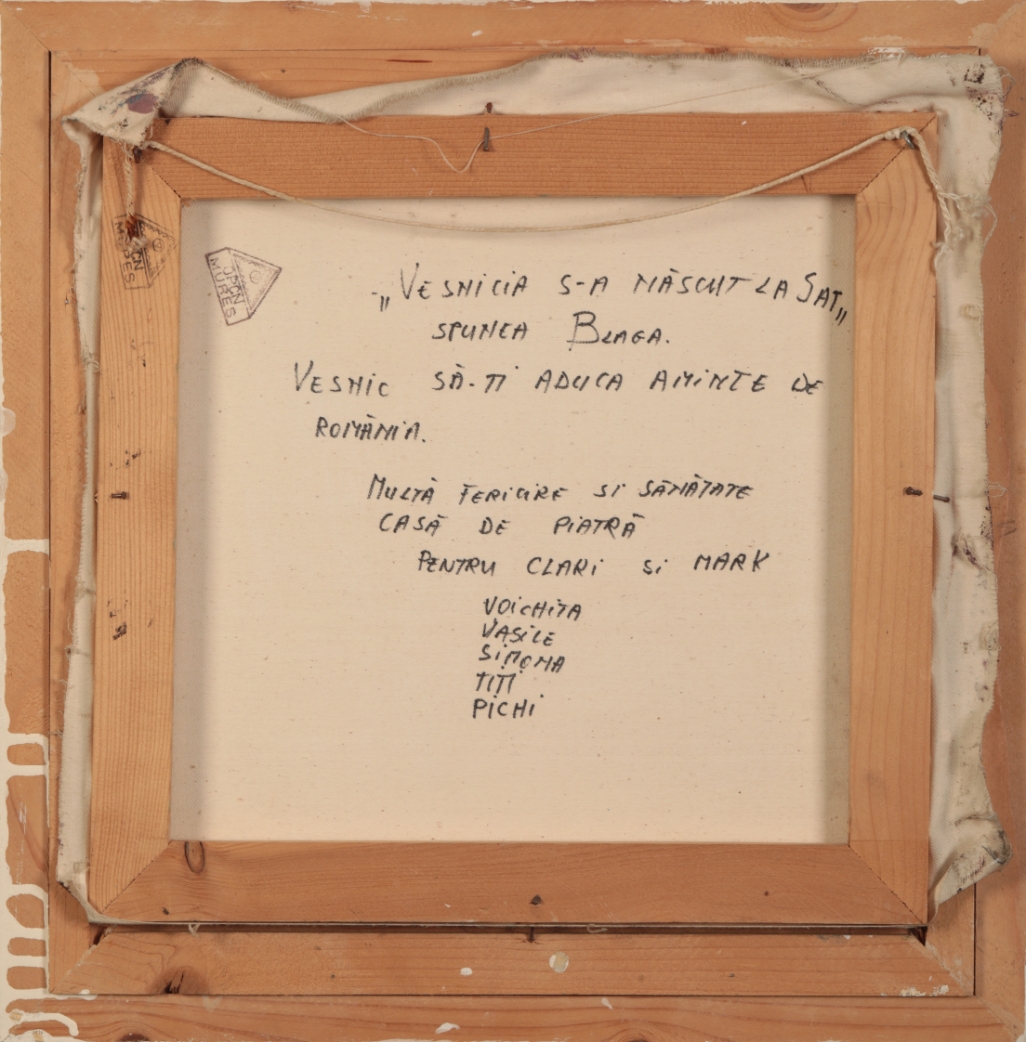 OPCN
MURES
OPCN
MURES
„VESNICIA S-A NĂSCUT LA SAT„
SPUNEA BLAGA.
VESNIC SĂ-TI ADUCA AMINTE DE
ROMÂNIA.
MULTĂ FERICIRE SI SĂNĂTATE
CASĂ DE PIATRĂ
PENTRU CLARI SI MARK
VOICHITA
VASILE
SIMONA
TITI
PICHI